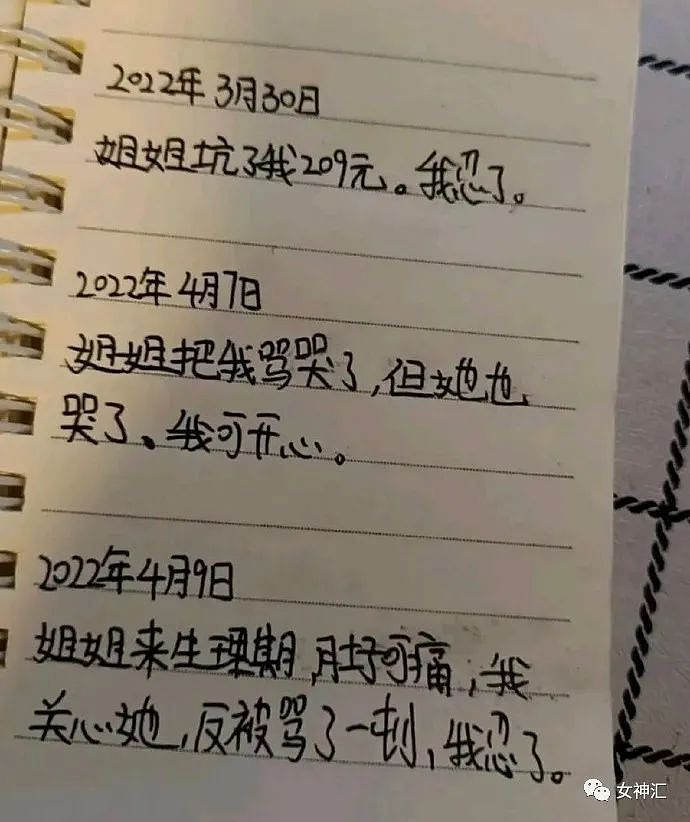 2022年3月30日
姐姐坑了我209元。我忍了。
2022年4月7日
姐姐把我骂哭了,但她也
哭了、我可开心。
2022年4月9日
姐姐来生理期,肚子可痛,我
关心她,反被骂了一顿,我忍了。
女神汇